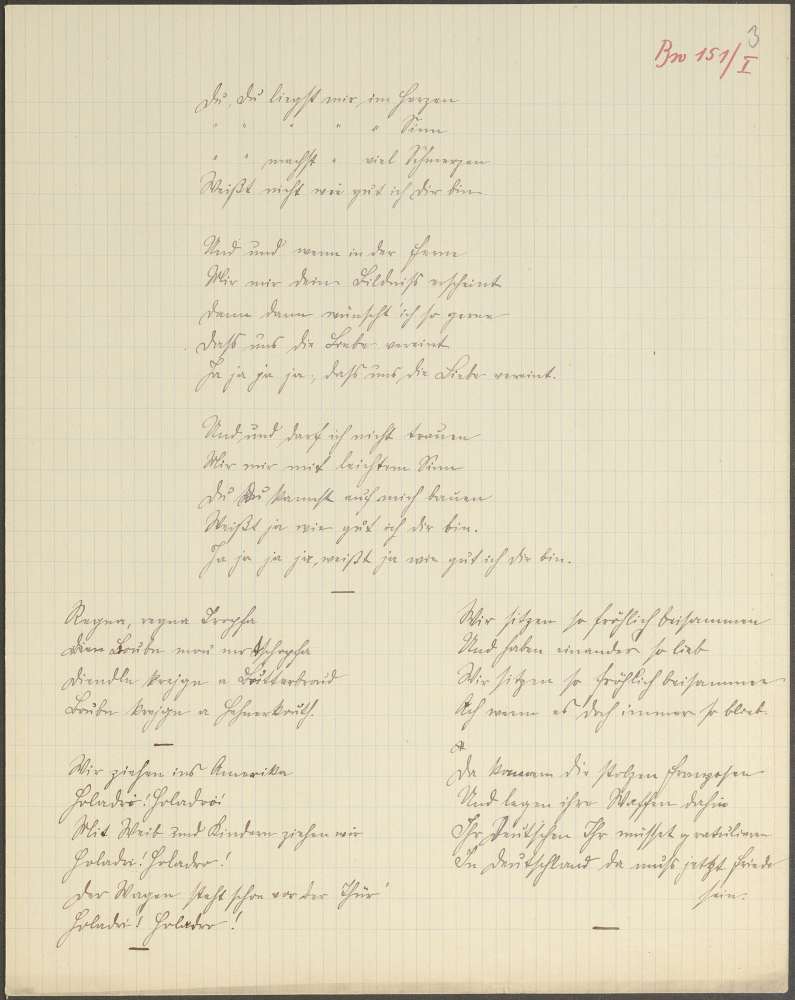 3
Bro 151/I
Du, Du liegst mir im Herzen
" " " " " Sinn
" " machst " viel Schmerzen
Weißt nicht wie gut ich Dir bin
Und und wenn in der Ferne
Mir mir dein Bildniß erscheint
Dann dann wünscht' ich so gerne
Daß uns die Liebe vereint
Ja ja ja ja, daß uns die Liebe vereint.
Und und darf ich nicht trauen
Mir mir mit leichtem Sinn
Du Du kannst auf mich bauen
Weißt ja wie gut ich dir bin.
Ja ja ja ja, weißt ja wie gut ich dir bin.
Regna, regna Tropfa
Boubn mou mr
Diendln kreign a Butterbraud
Boubn kreign a
Wir ziehen ins Amerika
Holadri! Holadro!
Mit Weib und Kindern ziehen wir
Holadri! Holadro!
Der Wagen steht schon vor der Thür
Holadri! Holadro!
Wir sitzen so fröhlich beisammen
Und haben einander so lieb
Wir sitzen so fröhlich beisammen
Ach wenn es doch immer so blieb.
Da kommen die stolzen Franzosen
Und legen ihre Waffen dahin
Ihr Deutschen Ihr müsset gratulieren
In Deutschland da muß jetzt Friede
sein.